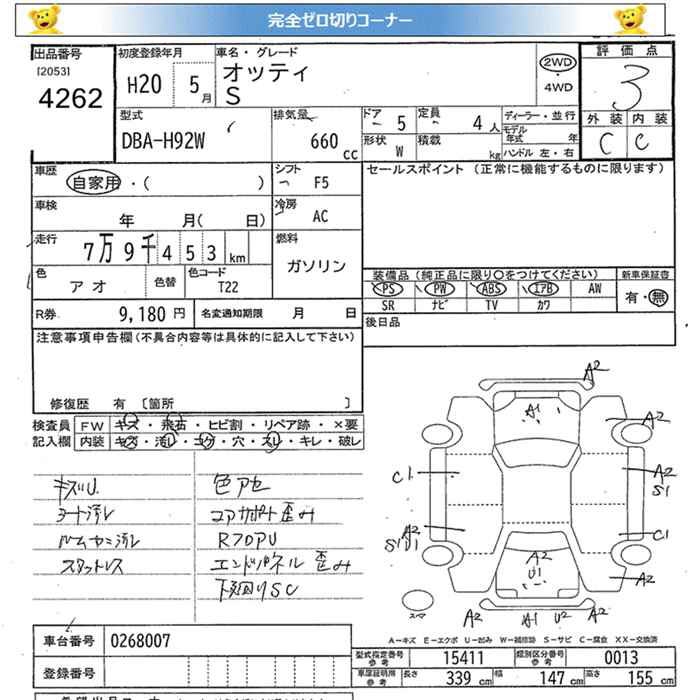 完全ゼロ切りコーナー
出品番号
[2053]
4262
初度登録年月
H20 5月
車名・グレード
オッティ
S
2WD
・
4WD
評価点
3
外装 内装
C C
型式
DBA-H92W
排気量
660 cc
ドア 5
形状 W
定員 4人
積載 kg
ディーラー・並行
モデル年式 年
ハンドル 左・右
車歴
自家用・( )
シフト
F5
セールスポイント (正常に機能するものに限ります)
車検
年 月( 日)
冷房
AC
走行
7万9千453 km
燃料
ガソリン
色
アオ
色替
色コード
T22
装備品 (純正品に限り○をつけてください)
PS PW ABS エアB AW
SR ナビ TV カワ
新車保証書
有・無
R券 9,180円
名変通知期限 月 日
後日品
注意事項申告欄 (不具合内容等は具体的に記入して下さい)
修復歴 有 〔箇所 〕
検査員
記入欄
FW キズ・飛石・ヒビ割・リペア跡・×要
内装 キズ・汚レ・コゲ・穴・スレ・キレ・破レ
キズU
シート汚レ
ルームヤニ汚レ
スタットレス
色アセ
コアサポート歪み
RフロアU
エンドパネル歪み
下廻りSC
A2
A1
A2
C1
A2
S1
A2
S1U1
C1
A2
U1
A2
スペア
A2 A1 U2 A2
A-キズ E-エクボ U-凹み W-補修跡 S-サビ C-腐食 XX-交換済
車台番号 0268007
登録番号
型式指定番号
参考
15411
類別区分番号
参考
0013
車庫証明用
参考
長さ 339 cm 幅 147 cm 高さ 155 cm